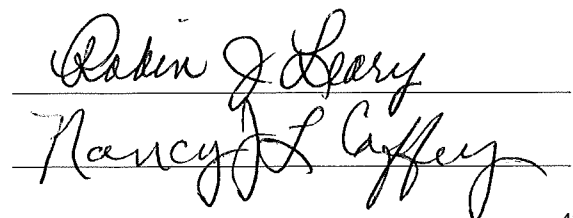 Robin J Leary
Nancy L Caffey